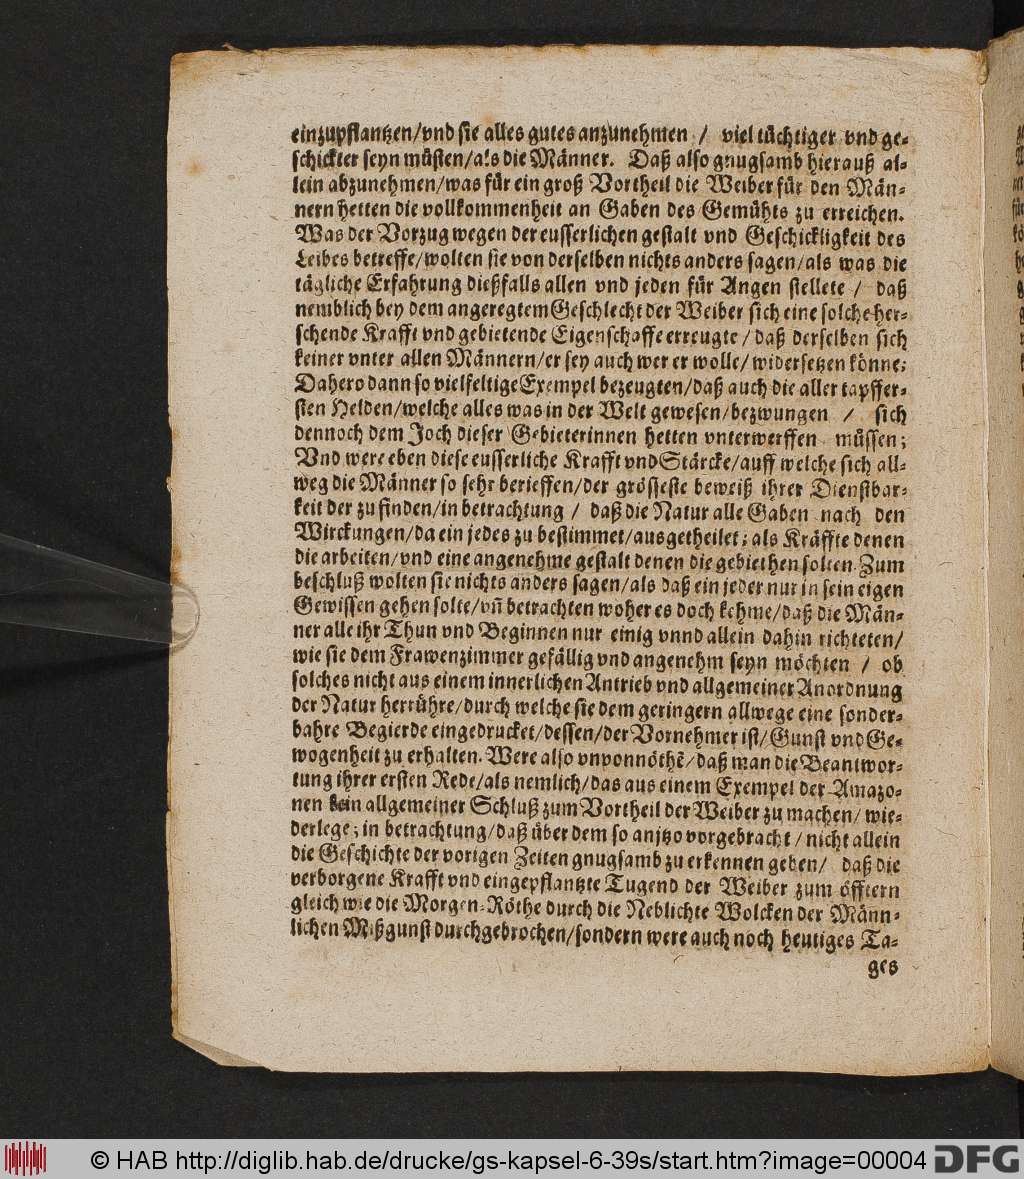 einzupflantzen/vnd sie alles gutes anzunehmen / viel tüchtiger vnd ge-
schickter seyn müsten/als die Männer. Daß also gnugsamb hierauß al-
lein abzunehmen/was für ein groß Vortheil die Weiber für den Män-
nern hetten die vollkommenheit an Gaben des Gemühts zu erreichen.
Was der Vorzug wegen der eusserlichen gestalt vnd Geschickligkeit des
Leibes betreffe/wolten sie von derselben nichts anders sagen/als was die
tägliche Erfahrung dießfalls allen vnd jeden für Augen stellete / daß
nemblich bey dem angeregtem Geschlecht der Weiber sich eine solche her-
schende Krafft vnd gebietende Eigenschaffe erreugte / daß derselben sich
keiner vnter allen Männern/er sey auch wer er wolle/ widersetzen könne;
Dahero dann so vielfeltige Exempel bezeugten/daß auch die aller tapffer-
sten Helden/welche alles was in der Welt gewesen/bezwungen / sich
dennoch dem Joch dieser Gebieterinnen hetten vnterwerffen müssen;
Vnd were eben diese eusserliche Krafft vnd Stärcke/auff welche sich all-
weg die Männer so sehr berieffen/der grösseste beweiß ihrer Dienstbar-
keit der zu finden/in betrachtung / daß die Natur alle Gaben nach den
Wirckungen/da ein jedes zu bestimmet/ausgetheilet; als Kräffte denen
die arbeiten/vnd eine angenehme gestalt denen die gebiethen solten. Zum
beschluß wolten sie nichts anders sagen/als daß ein jeder nur in sein eigen
Gewissen gehen solte/vñ betrachten woher es doch kehme/daß die Män-
ner alle ihr Thun vnd Beginnen nur einig vnnd allein dahin richteten/
wie sie dem Frawenzimmer gefällig vnd angenehm seyn möchten / ob
solches nicht aus einem innerlichen Antrieb vnd allgemeiner Anordnung
der Natur herrühre/durch welche sie dem geringern allwege eine sonder-
bahre Begierde eingedrucket/dessen/der Vornehmer ist/Gunst vnd Ge-
wogenheit zu erhalten. Were also vnvonnöthẽ/daß man die Beantwor-
tung ihrer ersten Rede/als nemlich/das aus einem Exempel der Amazo-
nen kein allgemeiner Schluß zum Vortheil der Weiber zu machen/ wie-
derlege; in betrachtung/daß über dem so anjtzo vorgebracht/nicht allein
die Geschichte der vorigen Zeiten gnugsamb zu erkennen geben/ daß die
verborgene Krafft vnd eingepflantzte Tugend der Weiber zum öfftern
gleich wie die Morgen-Röthe durch die Neblichte Wolcken der Männ-
lichen Mißgunst durchgebrochen/sondern were auch noch heutiges Ta-
ges
© HAB http://diglib.hab.de/drucke/gs-kapsel-6-39s/start.htm?image=00004 DFG